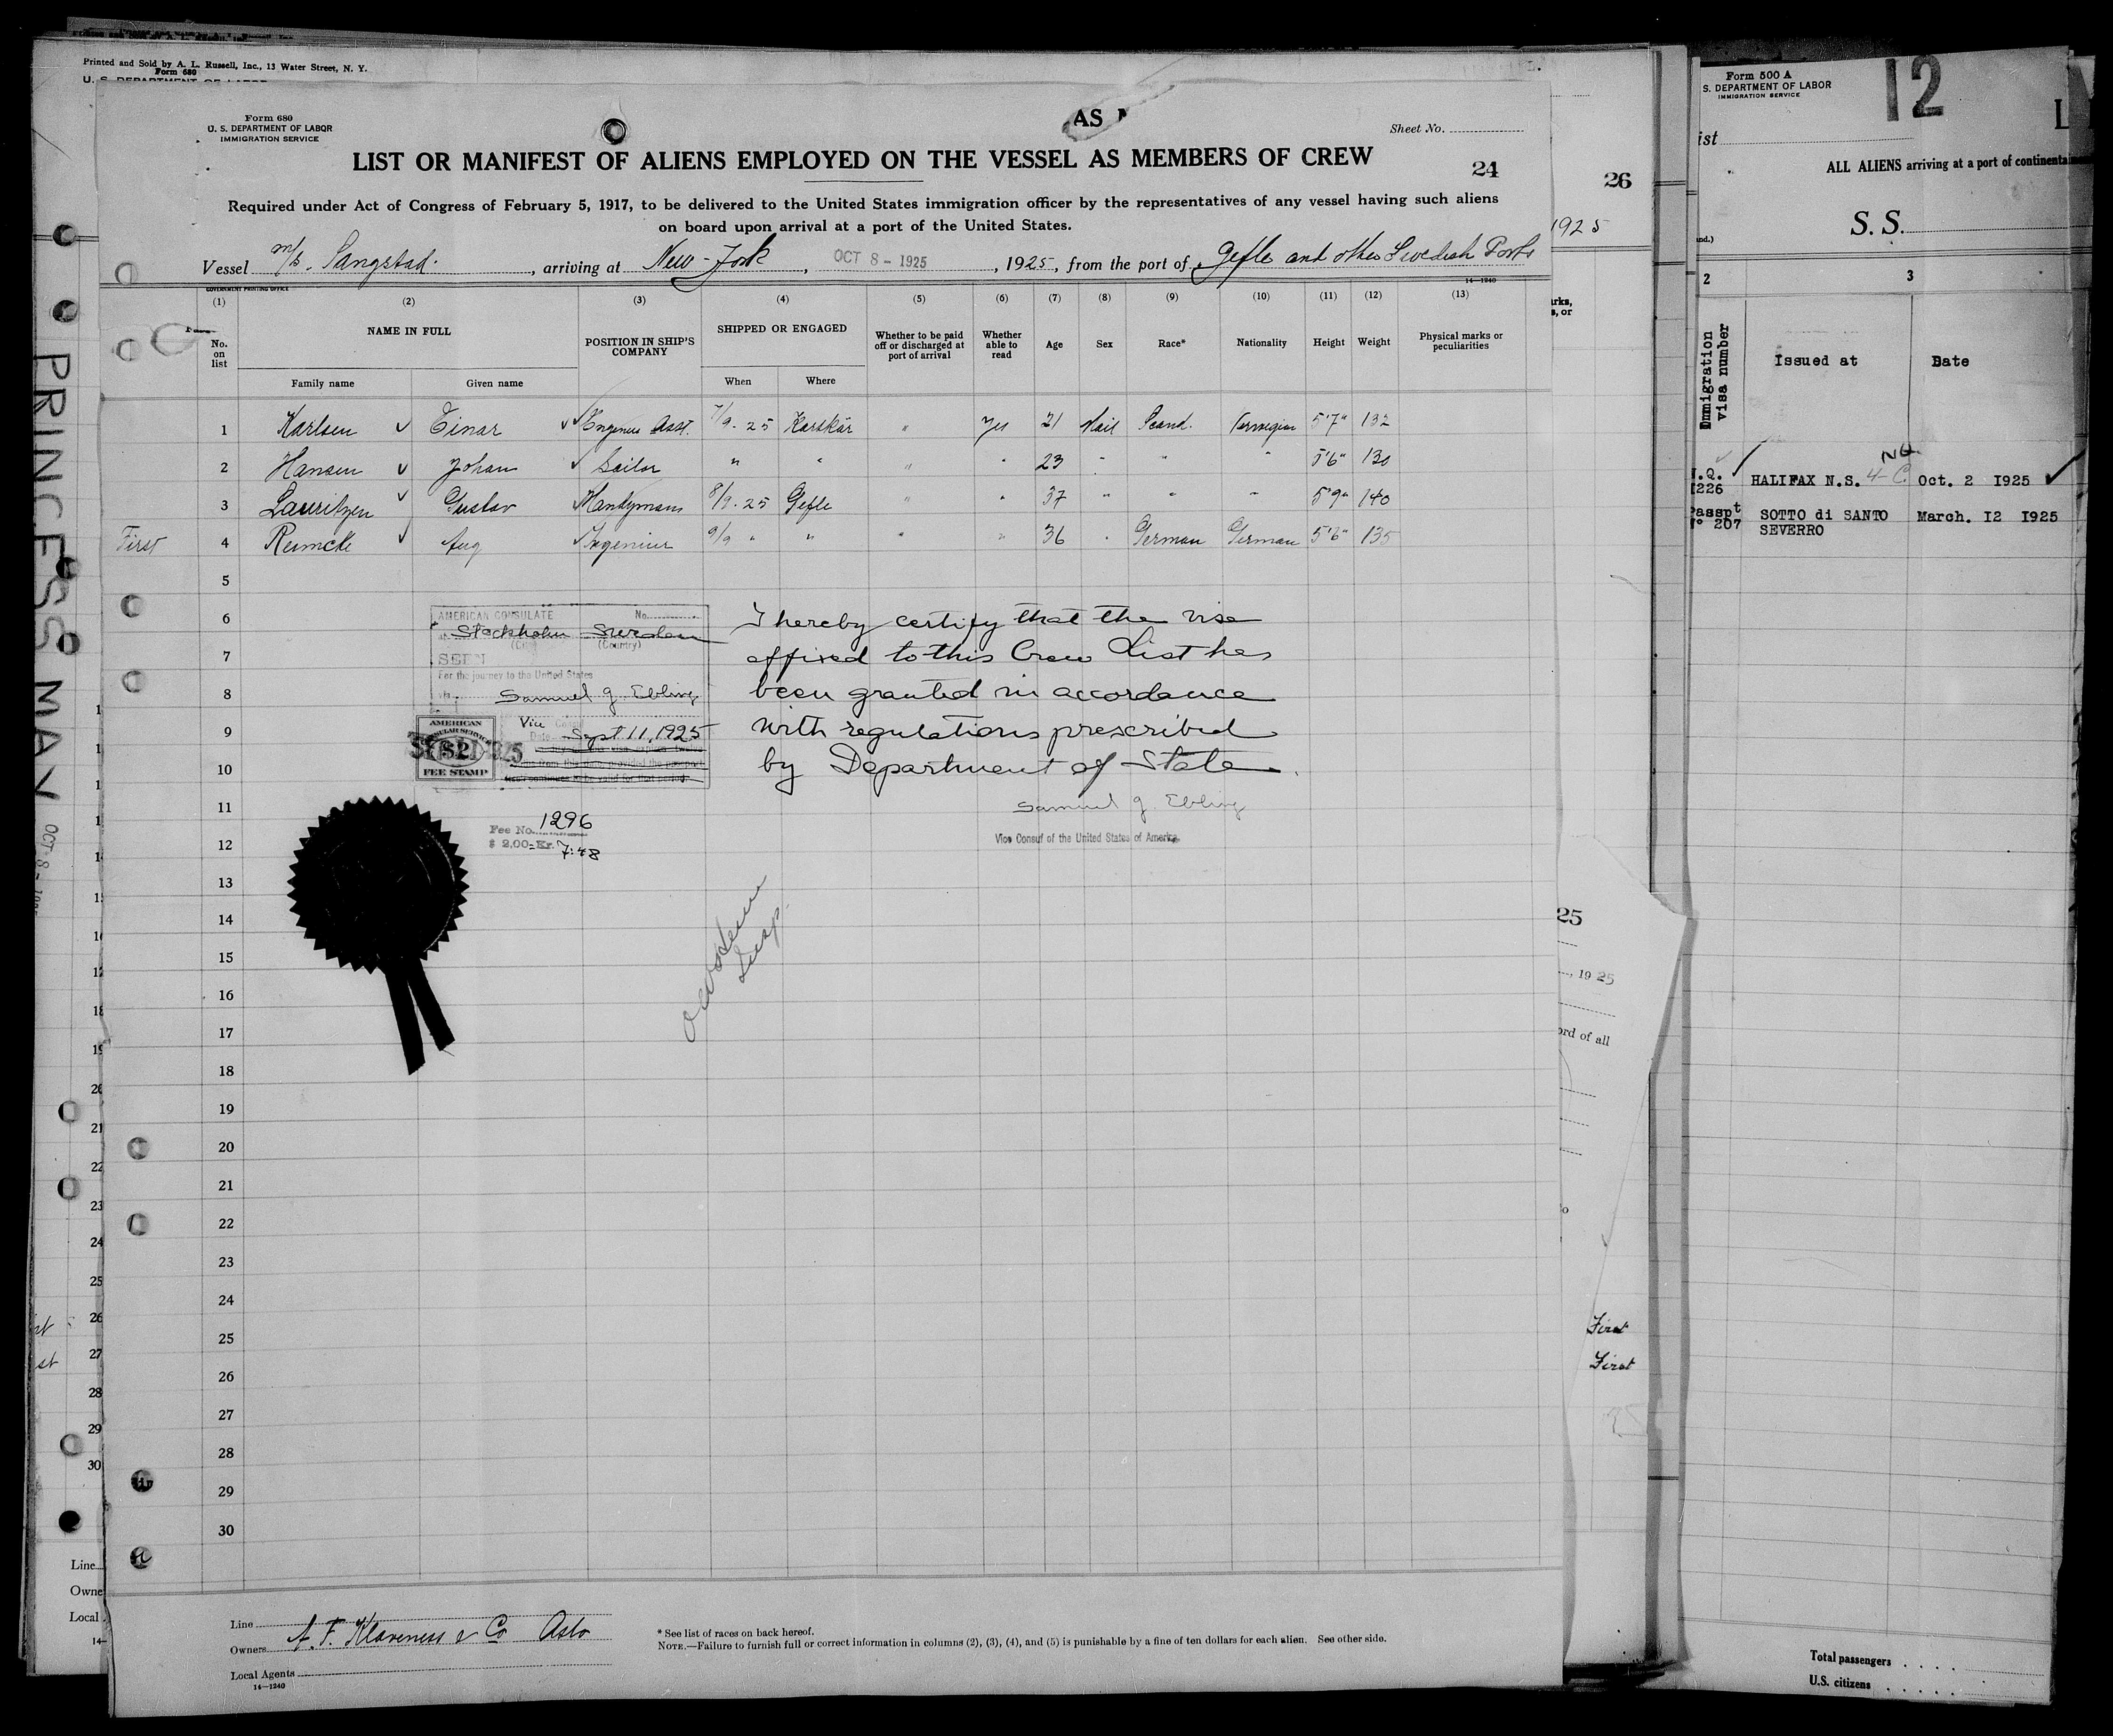 Printed and Sold by A. L. Russell, Inc., 13 Water Street, N. Y.
Form 680
U. S. DEPARTMENT OF LABOR
Form 680
U. S. DEPARTMENT OF LABOR
IMMIGRATION SERVICE
AS
Sheet No.
LIST OR MANIFEST OF ALIENS EMPLOYED ON THE VESSEL AS MEMBERS OF CREW
24
Required under Act of Congress of February 5, 1917, to be delivered to the United States immigration officer by the representatives of any vessel having such aliens
on board upon arrival at a port of the United States.
Vessel m/s. Sangstad. , arriving at New-York , OCT 8 - 1925 , 1925, from the port of Gefle and other Swedish Ports
GOVERNMENT PRINTING OFFICE
14—1240
(1) (2) (3) (4) (5) (6) (7) (8) (9) (10) (11) (12) (13)
No. on list
NAME IN FULL
Family name
Given name
POSITION IN SHIP'S COMPANY
SHIPPED OR ENGAGED
When
Where
Whether to be paid off or discharged at port of arrival
Whether able to read
Age
Sex
Race*
Nationality
Height
Weight
Physical marks or peculiarities
1 Karlsen Einar Engineer Asst. 7/9.25 Karskär " Yes 21 Mail Scand. Norwegian 5'7" 132
2 Hansen Johan Sailor " " " " 23 " " " 5'6" 130
3 Lauritzen Gustav Handymann 8/9.25 Gefle " " 37 " " " 5'9" 140
First 4 Reimcke Aug Ingeniur 9/9 " " " " 36 " German German 5'6" 135
5
6
7
8
9
10
11
12
13
14
15
16
17
18
19
20
21
22
23
24
25
26
27
28
29
30
AMERICAN CONSULATE No.
at Stockholm Sweden
(City) (Country)
SEEN
For the journey to the United States
Samuel G. Ebling
Vice Consul
Date Sept 11, 1925
AMERICAN
CONSULAR SERVICE
$2
FEE STAMP
Fee No. 1296
$ 2.00 = Kr. 7:48
I hereby certify that the vise
affixed to this Crew List has
been granted in accordance
with regulations prescribed
by Department of State.
Samuel G. Ebling
Vice Consul of the United States of America.
Insp.
Line
Owners A. F. Klaveness & Co Oslo
Local Agents
14—1240
* See list of races on back hereof.
NOTE.—Failure to furnish full or correct information in columns (2), (3), (4), and (5) is punishable by a fine of ten dollars for each alien. See other side.
PRINCESS MAY OCT 8
Line
Owne
Local
26
1925
25
, 1925
ord of all
First
First
Form 500 A
S. DEPARTMENT OF LABOR
IMMIGRATION SERVICE
12
ist
ALL ALIENS arriving at a port of continenta
S. S.
2 3
Immigration visa number
Issued at
Date
N.Q.
1226 HALIFAX N.S. 4-C. NQ Oct. 2 1925
Passpt
N° 207 SOTTO di SANTO SEVERRO March. 12 1925
Total passengers
U.S. citizens